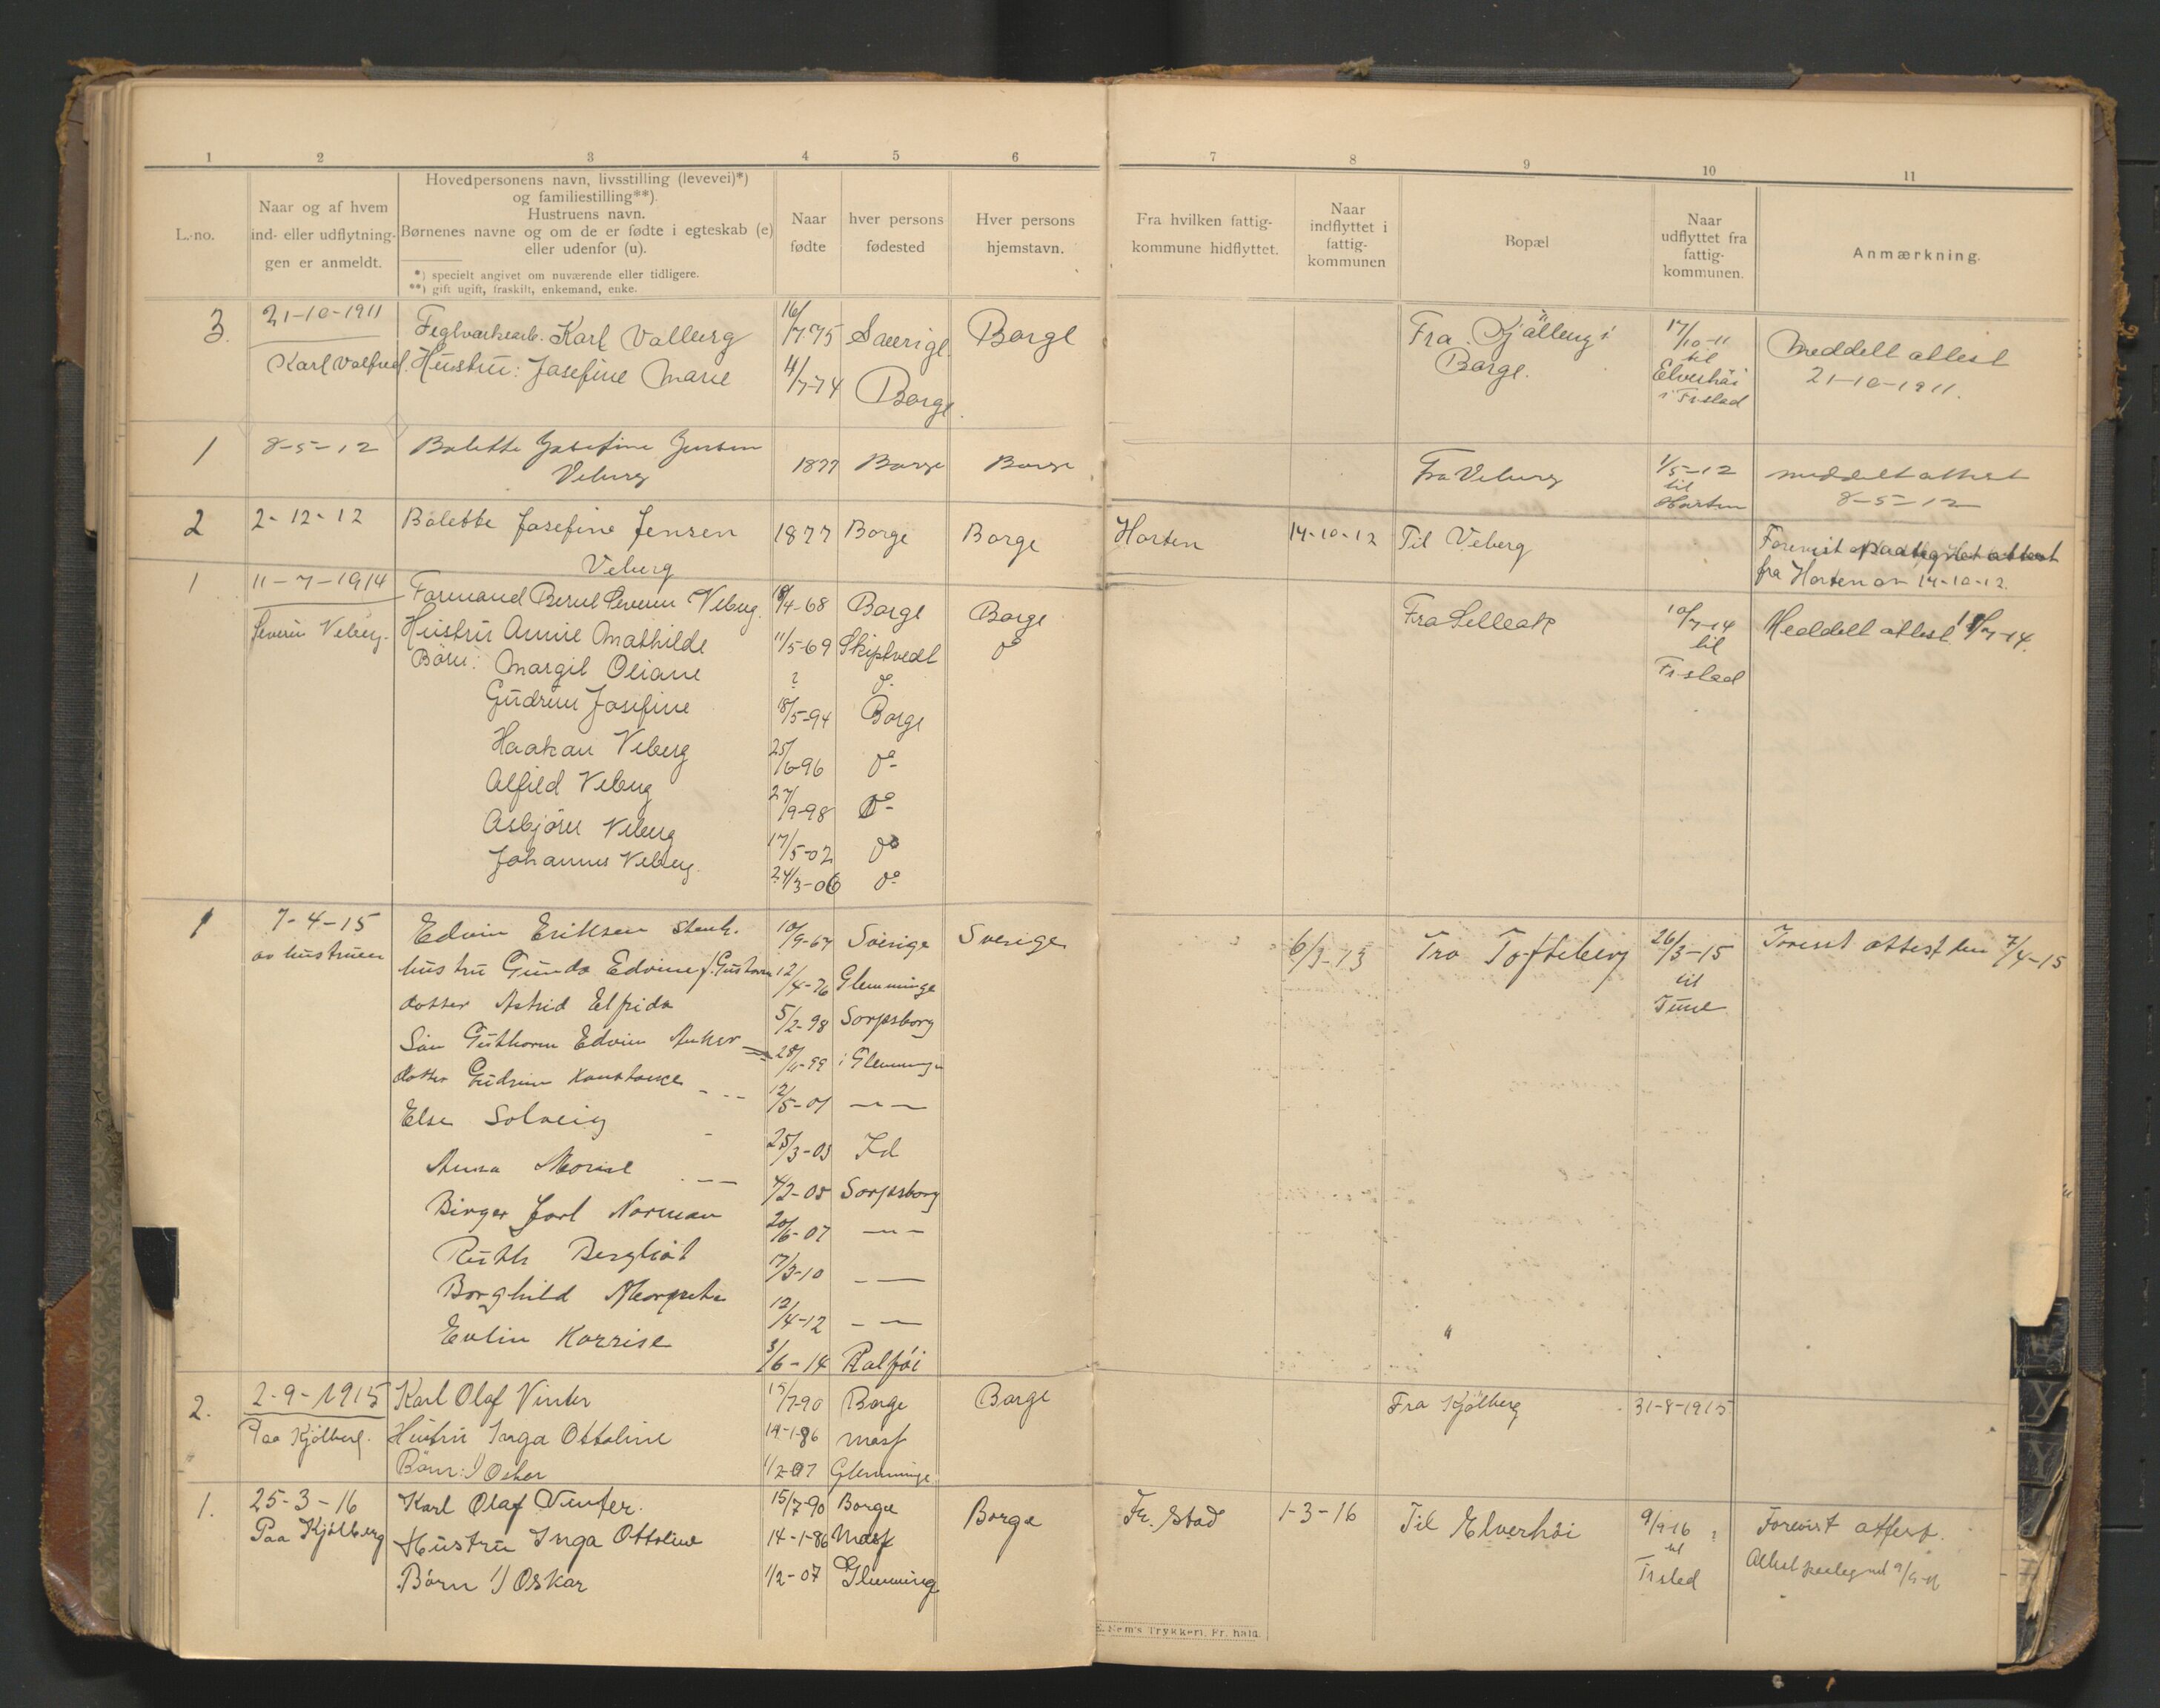 1 2 3 4 5 6 7 8 9 10 11
L.-no.
Naar og af hvem
ind- eller udflytning-
gen er anmeldt.
Hovedpersonens navn, livsstilling (levevei)*)
og familiestilling**).
Hustruens navn.
Børnenes navne og om de er fødte i egteskab (e)
eller udenfor (u).
*) specielt angivet om nuværende eller tidligere.
**) gift ugift, fraskilt, enkemand, enke.
Naar
fødte
hver persons
fødested
Hver persons
hjemstavn.
Fra hvilken fattig-
kommune hidflyttet.
Naar
indflyttet i
fattig-
kommunen
Bopæl
Naar
udflyttet fra
fattig-
kommunen.
Anmærkning.
3. 21-10-1911 Karl 16/7-75 Borge Fra 17/10-11 Meddelt attest
Karl Valfred. Hustru: Josefine Marie 11/7-74 Borge. Borge. til 21-10-1911.
Elverhöi
i Fr.stad
1 8-5-12 Balette Josefine Jensen 1877 Borge Borge Fra Veberg 1/5-12 meddelt attest
Veberg til 8-5-12
Horten
2 2-12-12 Balette Josefine Jensen 1877 Borge Borge Horten 14-10-12 Til Veberg Forevist paategnet attest
Veberg fra Horten av 14-10-12.
1 11-7-1914 Formand Severin Veberg. Borge Borge Fra 10/7-14 Meddelt attest
Severin Veberg. Hustru Annie Mathilde 11/5-69 Skiptvedt do til
Börn: Margit Oliane ? do Fr.stad
Gudrun Josefine 18/5-94 Borge
Haakon Veberg 25/6-96 do
Alfild Veberg 27/9-98 do
Asbjörn Veberg 17/5-02 do
Johannes Veberg. 24/3-06 do
1 7-4-15 Edvin Eriksen 10/9-67 Sverige Sverige 6/3-13 Fra Tofteberg 26/3-15 attest den 7/4-15
av hustruen hustru Gunda 12/4-76 Glemminge til
dotter Astrid Elfrida 5/2-98 Sarpsborg Tune
Sön Guthorm Edvin i Glemminge
dotter Gudrun Konstance 12/5-01 — —
Else Solveig 25/3-03 Id
Anna Marie Sarpsborg
Birger Jarl Norman 20/6-07 — —
Ruth Bergliot — —
Borghild Margrete 12/4-12 — —
Evlin 3/6-14
2. 2-9-1915 Karl Olaf Vinter 15/7-90 Borge Borge Fra Kjölberg 31-8-1915
Paa Kjölberg. Hustru Inga Ottoline 14-1-86 Moss
Börn: 1) Oskar 1/2-07 Glemminge
1. 25-3-16 Karl Olaf Vinter. 15/7-90 Borge Borge Fr. stad 1-3-16 Til Elverhöi 9/9-16 Forevist attest.
Paa Kjölberg Hustru Inga Ottoline 14-1-86 Moss til
Börn 1) Oskar 1/2-07 Glemminge Fr.stad
E. Sem's Trykkeri, Fr. hald.